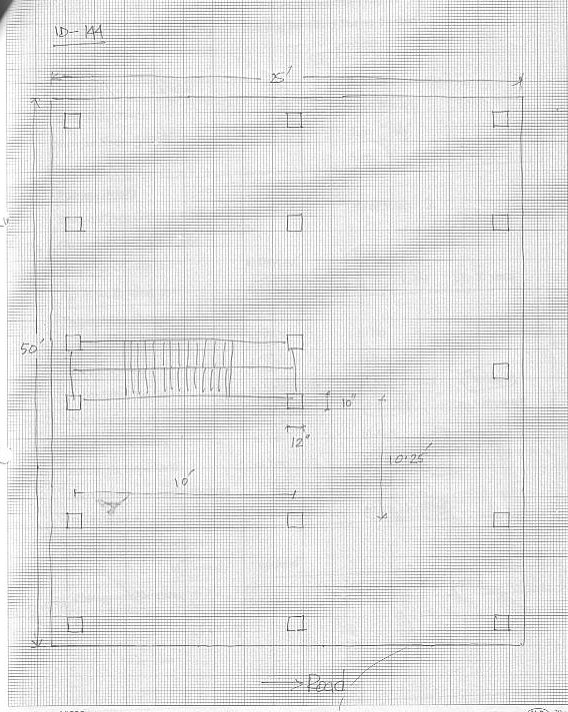 ID-144
25'
50'
10"
12"
10'25'
10'
Road